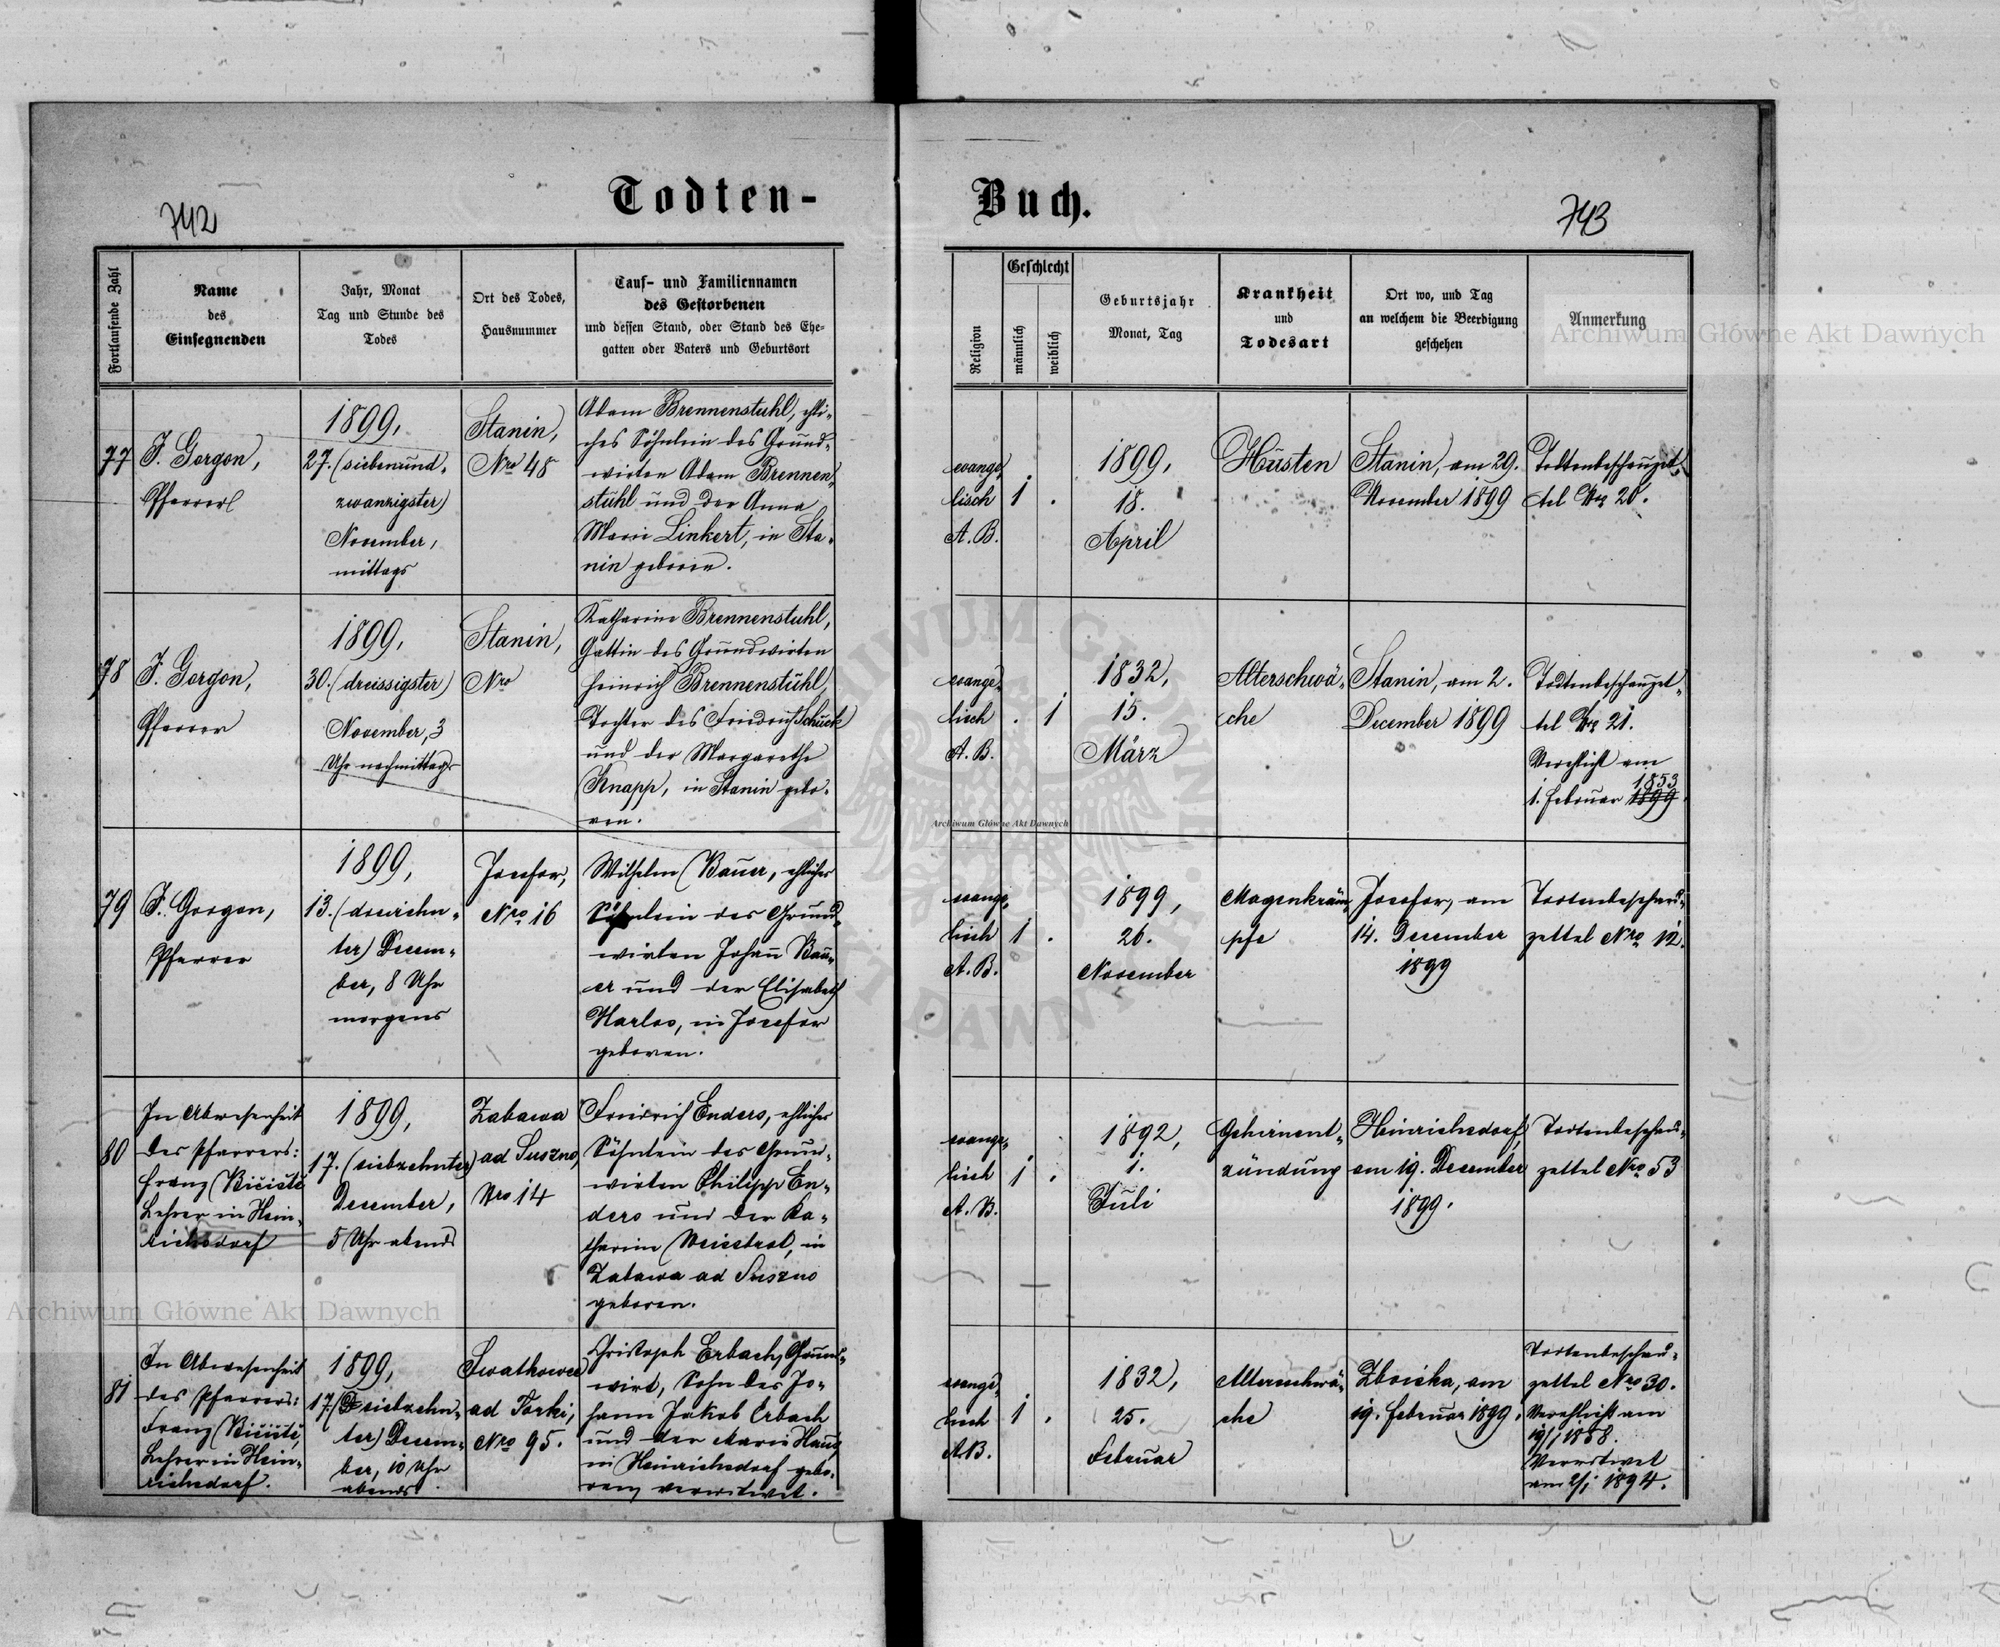 Todten-
Buch.
742
743
Fortlaufende Zahl
Name
des
Einsegnenden
Jahr, Monat
Tag und Stunde des
Todes
Ort des Todes,
Hausnummer
Tauf- und Familiennamen
des Gestorbenen
und dessen Stand, oder Stand des Ehe-
gatten oder Vaters und Geburtsort
Religion
Geschlecht
männlich
weiblich
Geburtsjahr
Monat, Tag
Krankheit
und
Todesart
Ort wo, und Tag
an welchem die Beerdigung
geschehen
Anmerkung
77
J. Gorgon,
Pfarrer
1899,
27. (siebenund-
zwanzigster)
November,
mittags
Stanin,
Nro 48
Adam Brennenstuhl, ehli-
ches Söhnlein des Grund-
wirten Adam Brennen-
stuhl und der Anna
Marie Linkert, in Sta-
nin geboren.
evange-
lisch
A. B.
1
.
1899,
18.
April
Husten
Stanin, am 29.
November 1899
Todtenbeschauzet-
tel Nro 20.
78
J. Gorgon,
Pfarrer
1899,
30. (dreissigster)
November, 3
Uhr nachmittags
Stanin,
Nro
Katharine Brennenstuhl,
Gattin des Grundwirten
Heinrich Brennenstuhl,
Tochter des Friedrich Schuck
und der Margarethe
Knapp, in Stanin gebo-
ren.
evange-
lisch
A. B.
.
1
1832,
15.
März
Alterschwä-
che
Stanin, am 2.
December 1899
Todtenbeschauzet-
tel Nro 21.
Verehlicht am
1853
1. Februar 1899.
79
J. Gorgon,
Pfarrer
1899,
13. (dreizehn-
ter) Decem-
ber, 8 Uhr
morgens
Josefow,
Nro 16
Wilhelm Bauer, ehliches
Söhnlein des Grund-
wirten Johann Bau-
er und der Elisabeth
Harlos, in Josefow
geboren.
evange-
lisch
A. B.
1
.
1899,
26.
November
Magenkräm-
pfe
Josefow, am
14. December
1899
Todtenbeschau-
zettel Nro 12.
80
In Abwesenheit
des Pfarrers:
Franz
Lehrer in Hein-
richsdorf
1899,
17. (siebzehnter)
December,
5 Uhr abends
Zabawa
ad Suszno,
Nro 14
Friedrich Enders, ehliches
Söhnlein des Grund-
wirten Philipp En-
ders und der Ka-
tharine in
Zabawa ad Suszno
geboren.
evange-
lisch
A. B.
1
.
1892,
1.
Juli
Gehirnent-
zündung
Heinrichsdorf,
am 19. December
1899.
Todtenbeschau-
zettel Nro 53
81
In Abwesenheit
des Pfarrers:
Franz
Lehrer in Hein-
richsdorf.
1899,
17. (siebzehn-
ter) Decem-
ber, 10 Uhr
abends
ad Torki,
Nro 95.
Christoph Erbach, Grund-
wirt, Sohn des Jo-
hann Jakob Erbach
und der Marie Haus,
in Heinrichsdorf gebo-
ren, verwitwet.
evange-
lisch
A. B.
1
.
1832,
25.
Februar
Altersschwä-
che
Zboiska, am
19. Februar 1899.
Todtenbeschau-
zettel Nro 30.
Verehlicht am
19/1 1858.
Verwitwet
am 2/1 1894.
Archiwum Główne Akt Dawnych
Archiwum Główne Akt Dawnych
Archiwum Główne Akt Dawnych